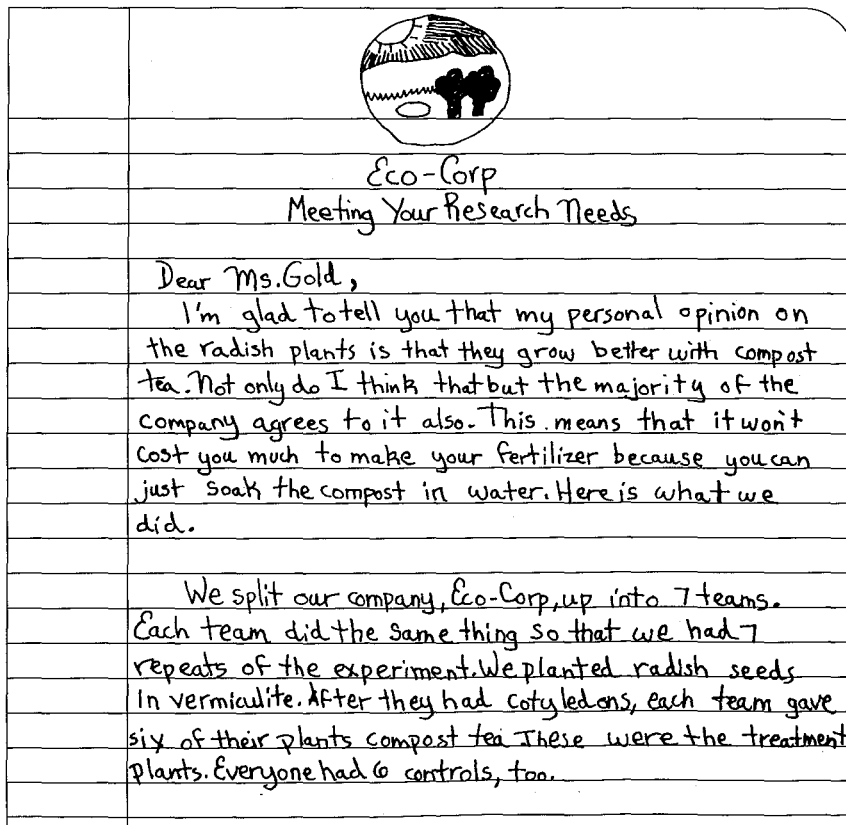 Eco-Corp
Meeting Your Research Needs
Dear Ms. Gold,
I'm glad to tell you that my personal opinion on
the radish plants is that they grow better with compost
tea. Not only do I think that but the majority of the
company agrees to it also. This means that it won't
cost you much to make your fertilizer because you can
just soak the compost in water. Here is what we
did.
We split our company, Eco-Corp, up into 7 teams.
Each team did the same thing so that we had 7
repeats of the experiment. We planted radish seeds
in vermiculite. After they had cotyledons, each team gave
six of their plants compost tea These were the treatment
plants. Everyone had 6 controls, too.